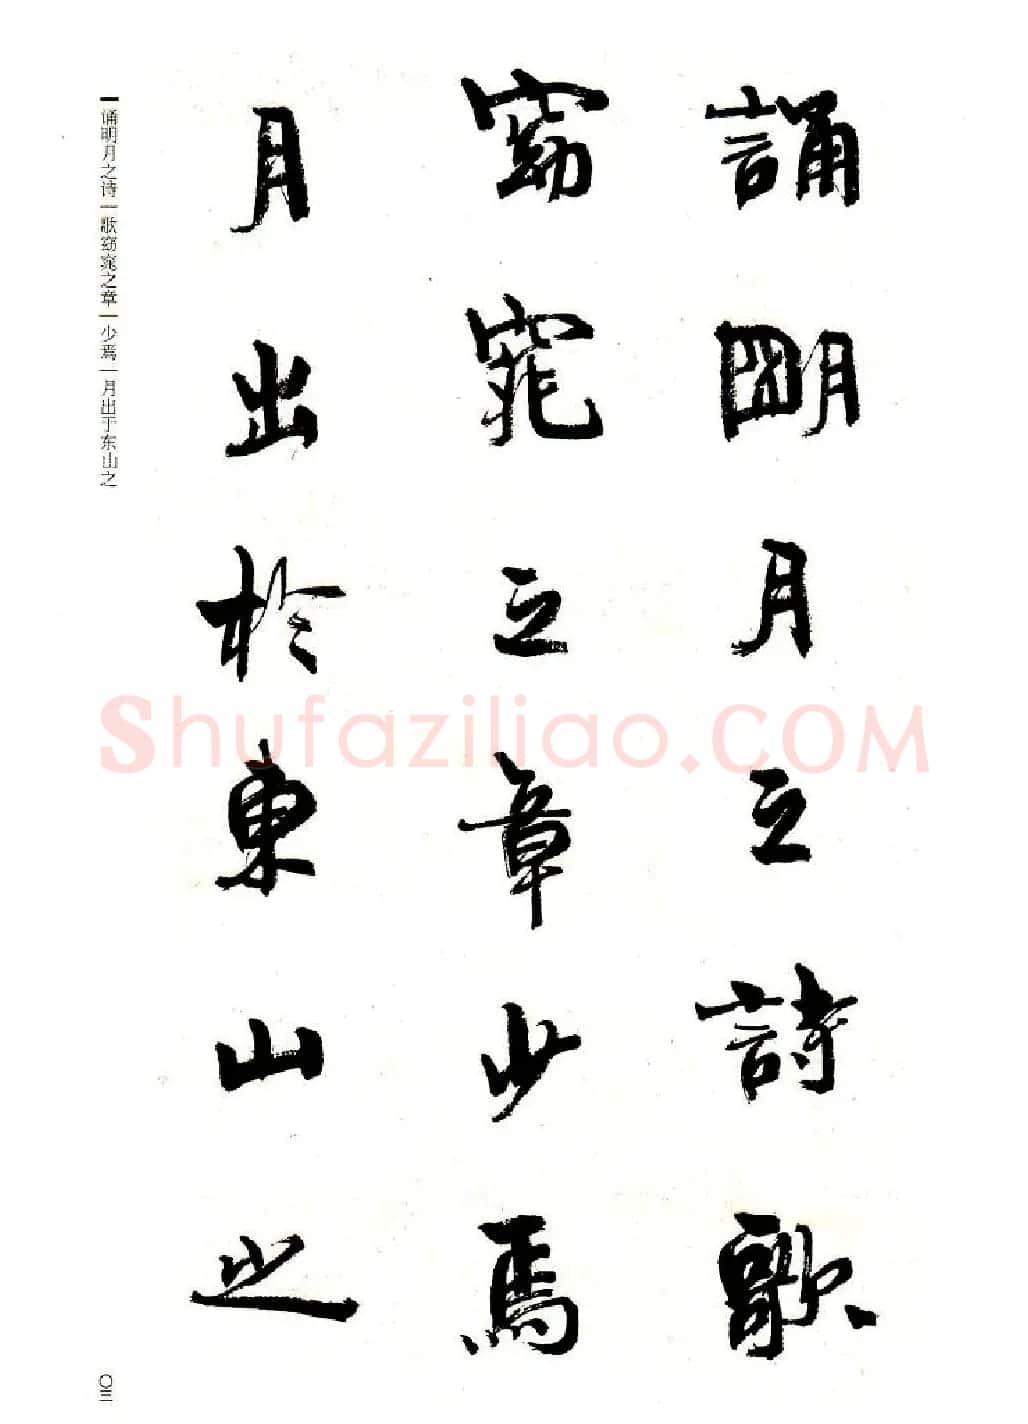 誦明月之詩歌
窈窕之章少焉
月出於東山之
诵明月之诗|歌窈窕之章|少焉|月出于东山之
〇三
Shufaziliao.COM